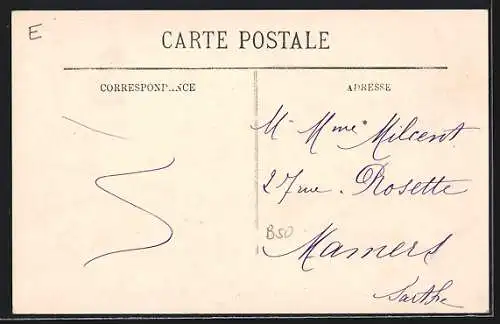 E
CARTE POSTALE
CORRESPONDANCE
ADRESSE
M- Mme Milcent
27 rue. Rosette
B50
Mamers
Sarthe